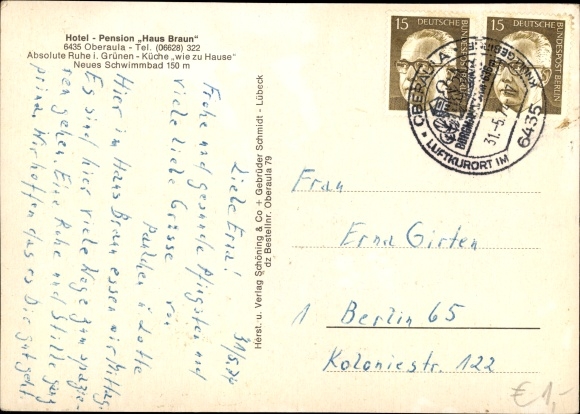 Hotel - Pension „Haus Braun"
6435 Oberaula - Tel. (06628) 322
Absolute Ruhe i. Grünen - Küche „wie zu Hause"
Neues Schwimmbad 150 m
31/5.74
Liebe Erna!
Frohe und gesunde Pfingsten und
viele liebe Grüsse von
Paulchen u Lotte
Hier im Haus Braun essen wir Mittag.
Es sind hier viele Wege zum spazie-
ren gehen. Eine Ruhe und Stille, ganz
prima. Wir hoffen das es Dir gut geht.
Herst. u. Verlag Schöning & Co + Gebrüder Schmidt - Lübeck
dz Bestellnr. Oberaula 79
15 DEUTSCHE BUNDESPOST BERLIN
15 DEUTSCHE BUNDESPOST BERLIN
6435 OBERAULA
31.-5.74
LUFTKURORT IM
Frau
Erna Girten
1 Berlin 65
Koloniestr. 122
€ 1,-